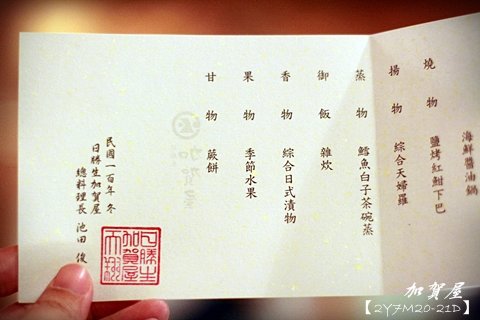 海鮮醬油鍋
燒物 鹽烤紅魽下巴
揚物 綜合天婦羅
蒸物 鱈魚白子茶碗蒸
御飯 雜炊
香物 綜合日式漬物
果物 季節水果
甘物 蕨餅
加賀屋
民國一百年 冬
日勝生加賀屋
總料理長 池田 俊
日勝生
加賀屋
加賀屋
【2Y7M20-21D】